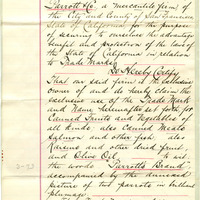 Parrott & Co. a mercantile firm of
the City and County of San Francisco
State of California for the purpose
of securing to ourselves the advantage
benefit and protection of the laws of
the State of California in relation
to Trade Marks
Do Hereby Certify
That our said firm is the exclusive
owner of and do hereby claim the
exclusive use of the Trade Mark
and Name hereinafter set forth for
Canned Fruits and Vegetables of
all kinds; also Canned Meats
Salmon and other fish also
Raisins and other dried fruit,
and Olive Oil, to wit:
the words "Parrott's Brand"
accompanied by the annexed
picture of two parrots in brilliant
plumage.